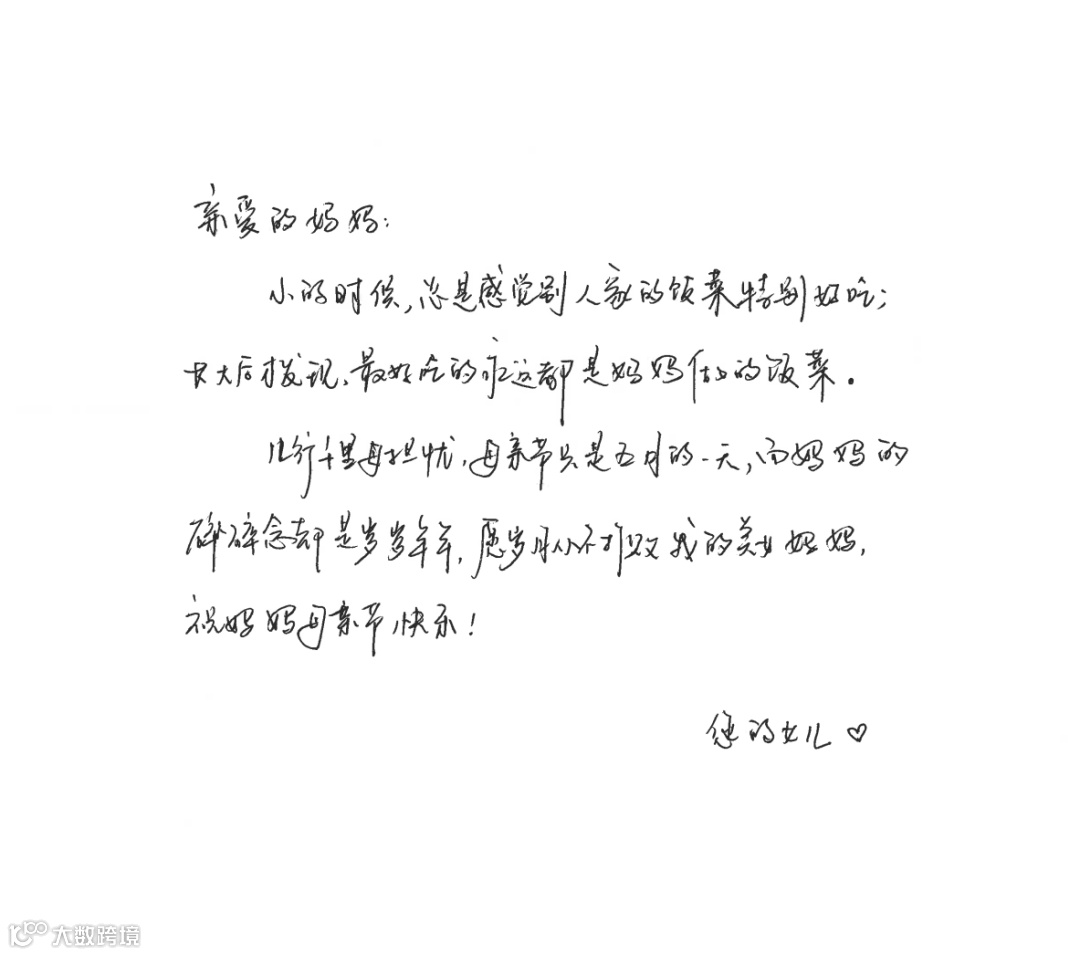 亲爱的妈妈：
小的时候，总是感觉别人家的饭菜特别好吃；
长大后才发现，最好吃的永远都是妈妈做的饭菜。
儿行千里母担忧，母亲节只是五月的一天，而妈妈的
碎碎念却是岁岁年年，愿岁月从不打败我的美女妈妈，
祝妈妈母亲节快乐！
您的女儿♡
大数跨境